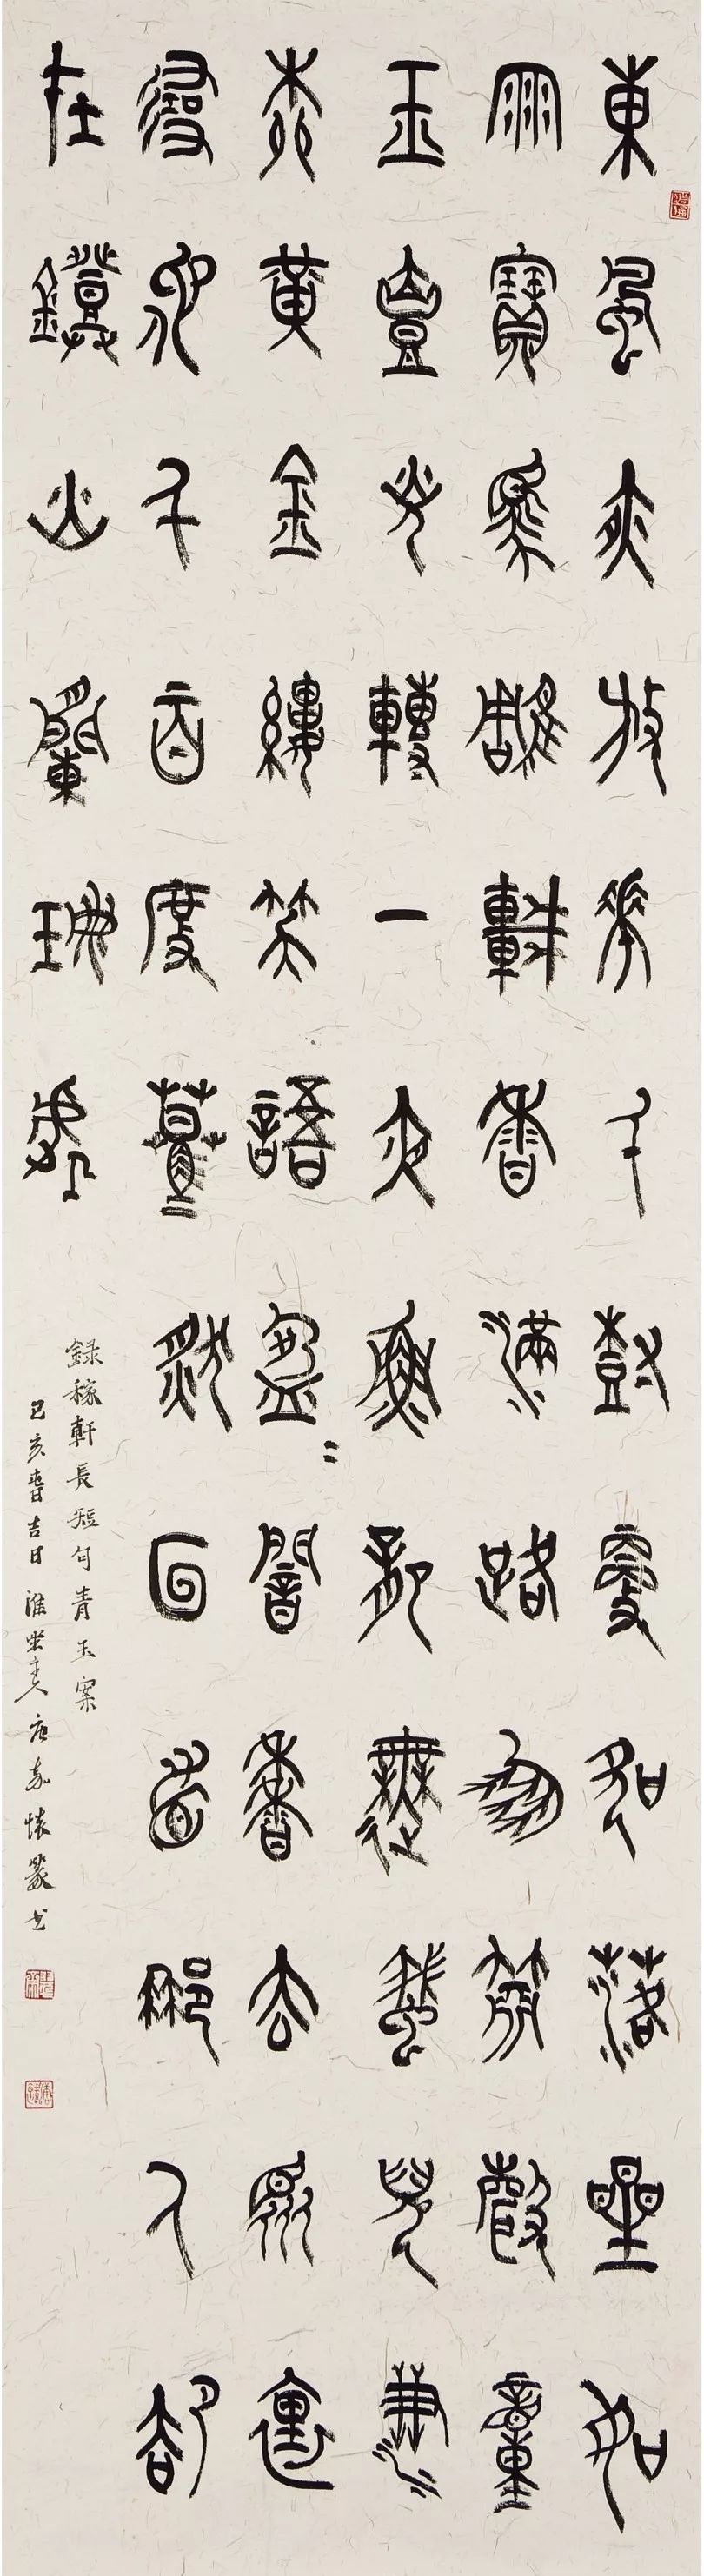 東風夜放花千樹更吹落星如
雨寶馬雕車香滿路鳳簫聲動
玉壺光轉一夜魚龍舞蛾兒雪
柳黃金縷笑語盈〻闇香去眾裏
尋他千百度驀然回首那人卻
在鐙火闌珊處
錄稼軒長短句青玉案
己亥春吉日淮人懷篆書